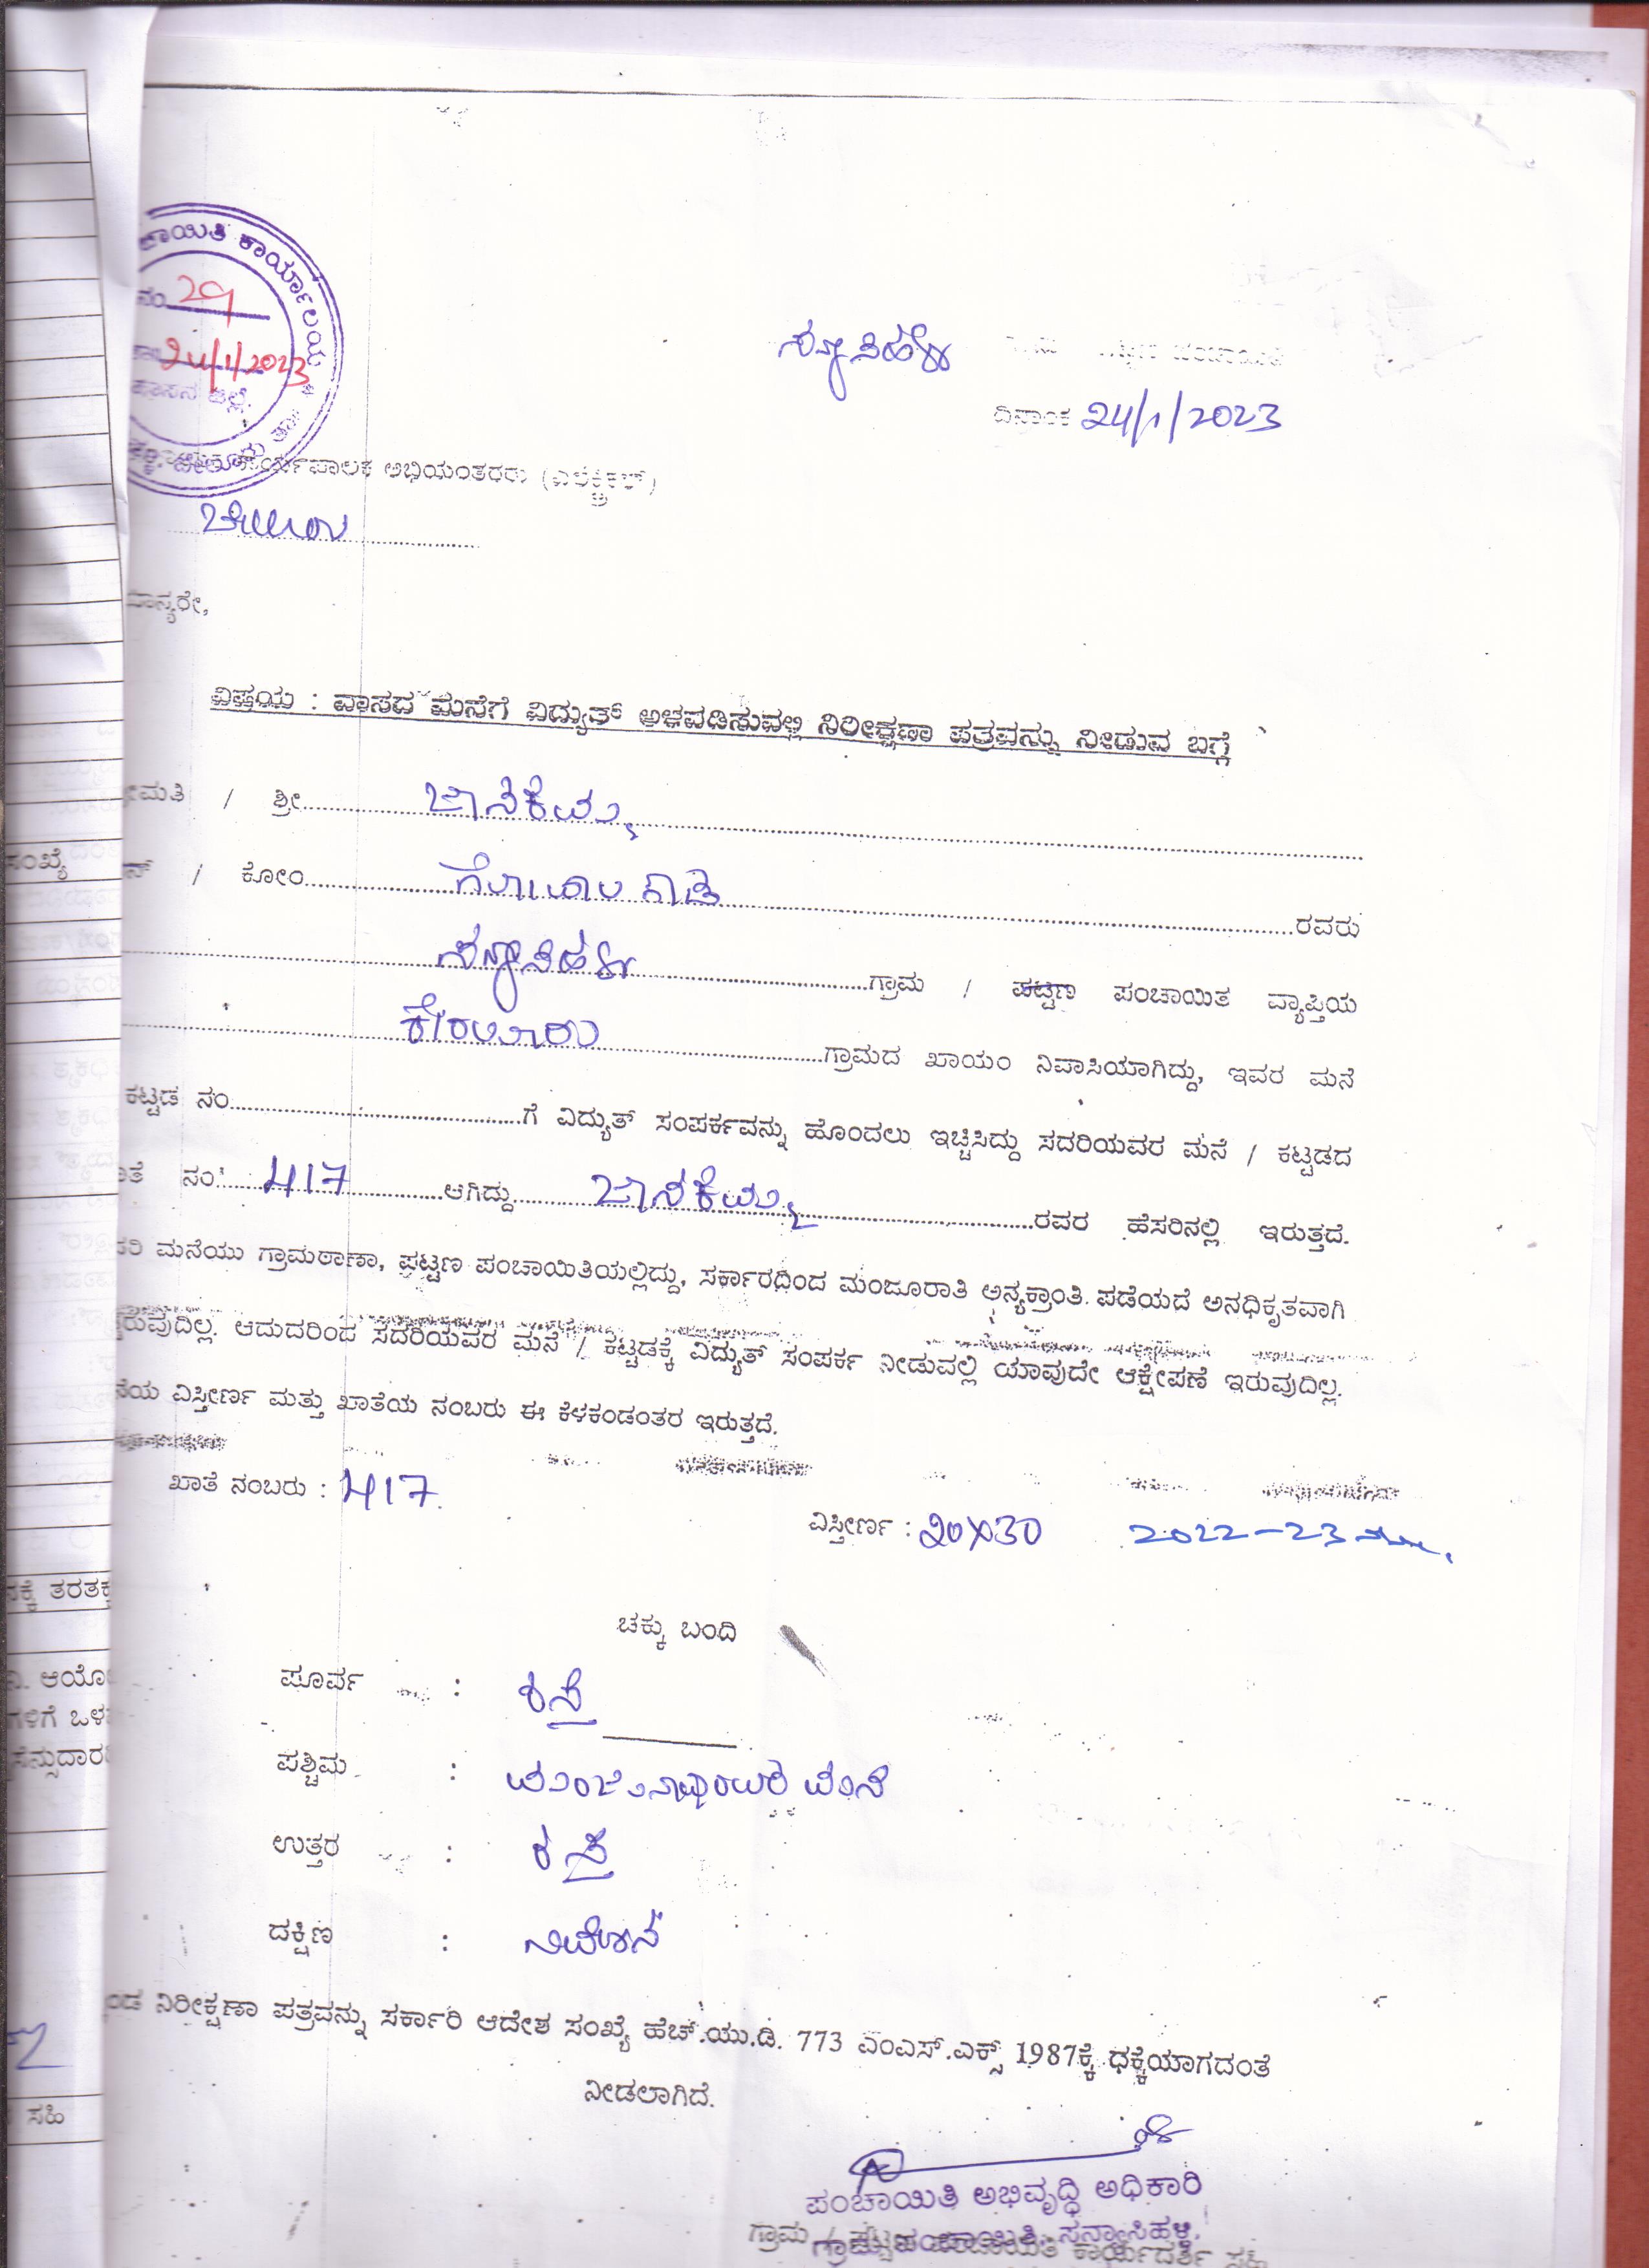 ಸಂಖ್ಯೆ
ಸಹಿ
ಕಾರ್ಯಾಲಯ
ನಂ 29
24/1/2023
ಹಾಸನ ಜಿಲ್ಲೆ.
ಸನ್ಯಾಸಿಹಳ್ಳಿ
ದಿನಾಂಕ 24/1/2023
ಅಭಿಯಂತರರು (ಎಲೆಕ್ಟ್ರಿಕಲ್)
ಬೇಲೂರು
ಮಾನ್ಯರೇ,
ವಿಷಯ : ವಾಸದ ಮನೆಗೆ ವಿದ್ಯುತ್ ಅಳವಡಿಸುವಲ್ಲಿ ನಿರೀಕ್ಷಣಾ ಪತ್ರವನ್ನು ನೀಡುವ ಬಗ್ಗೆ
ಮತಿ / ಶ್ರೀ ಜಾನಕಮ್ಮ
ನ್ / ಕೋಂ ಗೋಪಾಲ ಶೆಟ್ಟಿ ರವರು
ಸನ್ಯಾಸಿಹಳ್ಳಿ ಗ್ರಾಮ / ಪಟ್ಟಣ ಪಂಚಾಯಿತ ವ್ಯಾಪ್ತಿಯ
ಗ್ರಾಮದ ಖಾಯಂ ನಿವಾಸಿಯಾಗಿದ್ದು, ಇವರ ಮನೆ
ಕಟ್ಟಡ ನಂ ಗೆ ವಿದ್ಯುತ್ ಸಂಪರ್ಕವನ್ನು ಹೊಂದಲು ಇಚ್ಚಿಸಿದ್ದು ಸದರಿಯವರ ಮನೆ / ಕಟ್ಟಡದ
ತೆ ನಂ 417 ಆಗಿದ್ದು ಜಾನಕಮ್ಮ ರವರ ಹೆಸರಿನಲ್ಲಿ ಇರುತ್ತದೆ.
ರಿ ಮನೆಯು ಗ್ರಾಮಠಾಣಾ, ಪಟ್ಟಣ ಪಂಚಾಯಿತಿಯಲ್ಲಿದ್ದು, ಸರ್ಕಾರದಿಂದ ಮಂಜೂರಾತಿ ಅನ್ಯಕ್ರಾಂತಿ ಪಡೆಯದೆ ಅನಧಿಕೃತವಾಗಿ
ರುವುದಿಲ್ಲ. ಆದುದರಿಂದ ಸದರಿಯವರ ಮನೆ / ಕಟ್ಟಡಕ್ಕೆ ವಿದ್ಯುತ್ ಸಂಪರ್ಕ ನೀಡುವಲ್ಲಿ ಯಾವುದೇ ಆಕ್ಷೇಪಣೆ ಇರುವುದಿಲ್ಲ.
ನೆಯ ವಿಸ್ತೀರ್ಣ ಮತ್ತು ಖಾತೆಯ ನಂಬರು ಈ ಕೆಳಕಂಡಂತರ ಇರುತ್ತದೆ.
ಖಾತೆ ನಂಬರು : 417
ವಿಸ್ತೀರ್ಣ : 20X30 2022-23
ಚಕ್ಕು ಬಂದಿ
ಪೂರ್ವ : ರಸ್ತೆ
ಪಶ್ಚಿಮ : ಮಂಜುನಾಥರವರ ಮನೆ
ಉತ್ತರ : ರಸ್ತೆ
ದಕ್ಷಿಣ : ನಿವೇಶನ
ನಿರೀಕ್ಷಣಾ ಪತ್ರವನ್ನು ಸರ್ಕಾರಿ ಆದೇಶ ಸಂಖ್ಯೆ ಹೆಚ್.ಯು.ಡಿ. 773 ಎಂಎಸ್.ಎಕ್ಸ್ 1987ಕ್ಕೆ ಧಕ್ಕೆಯಾಗದಂತೆ
ನೀಡಲಾಗಿದೆ.
ಪಂಚಾಯಿತಿ ಅಭಿವೃದ್ಧಿ ಅಧಿಕಾರಿ
ಸನ್ಯಾಸಿಹಳ್ಳಿ.
ಕಾರ್ಯದರ್ಶಿ ಸಹಿ